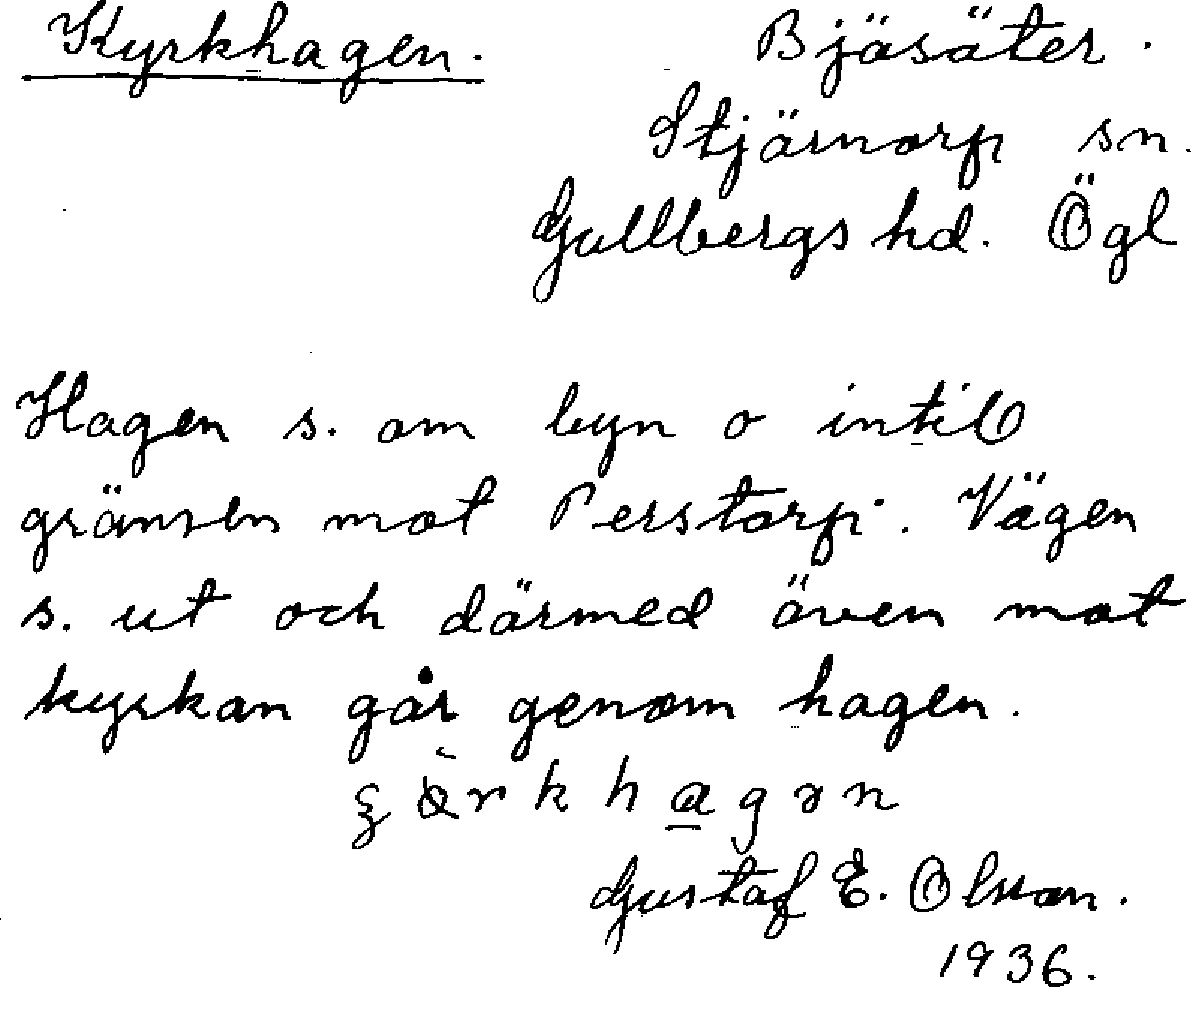 Kyrkhagen. Bjäsäter.
Stjärnorp sn.
Gullbergs hd. Ögl
Hagen s. om byn o intill
gränsen mot Perstorp. Vägen
s. ut och därmed även mot
kyrkan går genom hagen.
Gustaf E. Olsson.
1936.